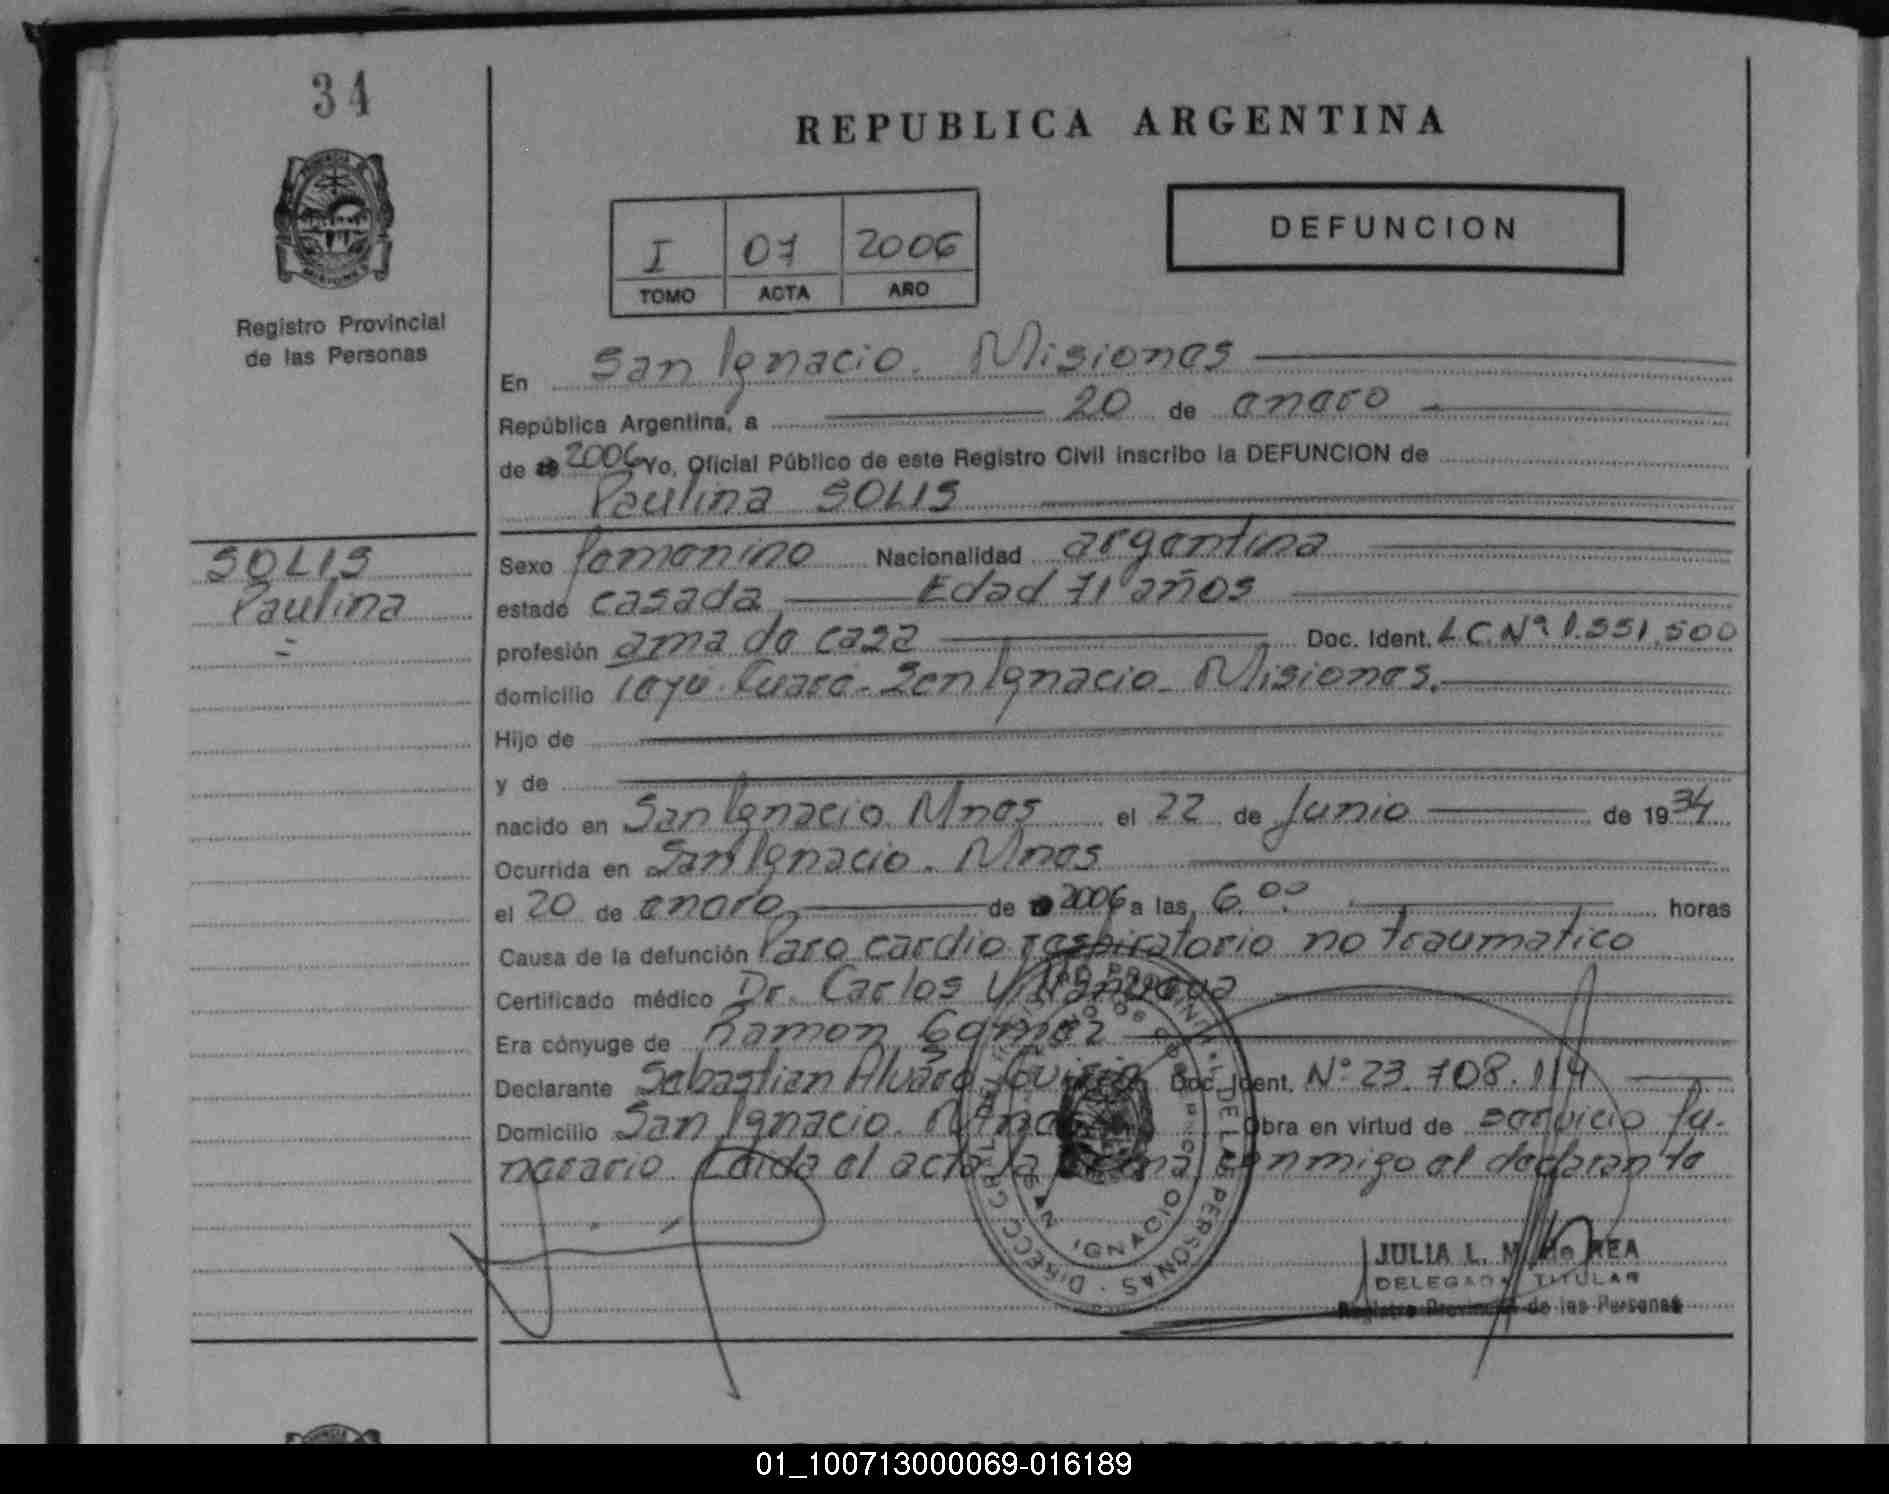 34
REPUBLICA ARGENTINA
DEFUNCION
I 07 2006
TOMO ACTA AÑO
Registro Provincial
de las Personas
En San Ignacio. Misiones
República Argentina, a 20 de enero
de 2006 Yo, Oficial Público de este Registro Civil inscribo la DEFUNCION de
Paulina SOLIS
SOLIS
Paulina
Sexo femenino Nacionalidad argentina
estado casada Edad 71 años
profesión ama de casa Doc. Ident. L.C.Nº 1.551.500
domicilio San Ignacio - Misiones.
Hijo de
y de
nacido en San Ignacio Mnes el 22 de Junio de 1934
Ocurrida en San Ignacio. Mnes
el 20 de enero de 2006 a las 6.00 horas
Causa de la defunción Paro cardio respiratorio no traumatico
Certificado médico Dr. Carlos Villanueva
Era cónyuge de Ramon Gomez
Declarante Sebastian Alvaro Doc. Ident. Nº 23.708.114
Domicilio San Ignacio. Mnes Obra en virtud de servicio fu-
nerario Leida el acta la firma conmigo el declarante
SAN IGNACIO
DIRECC. GRAL. DE LAS PERSONAS
JULIA L. M. de REA
DELEGADA TITULAR
Registro Provincial de las Personas
01_100713000069-016189